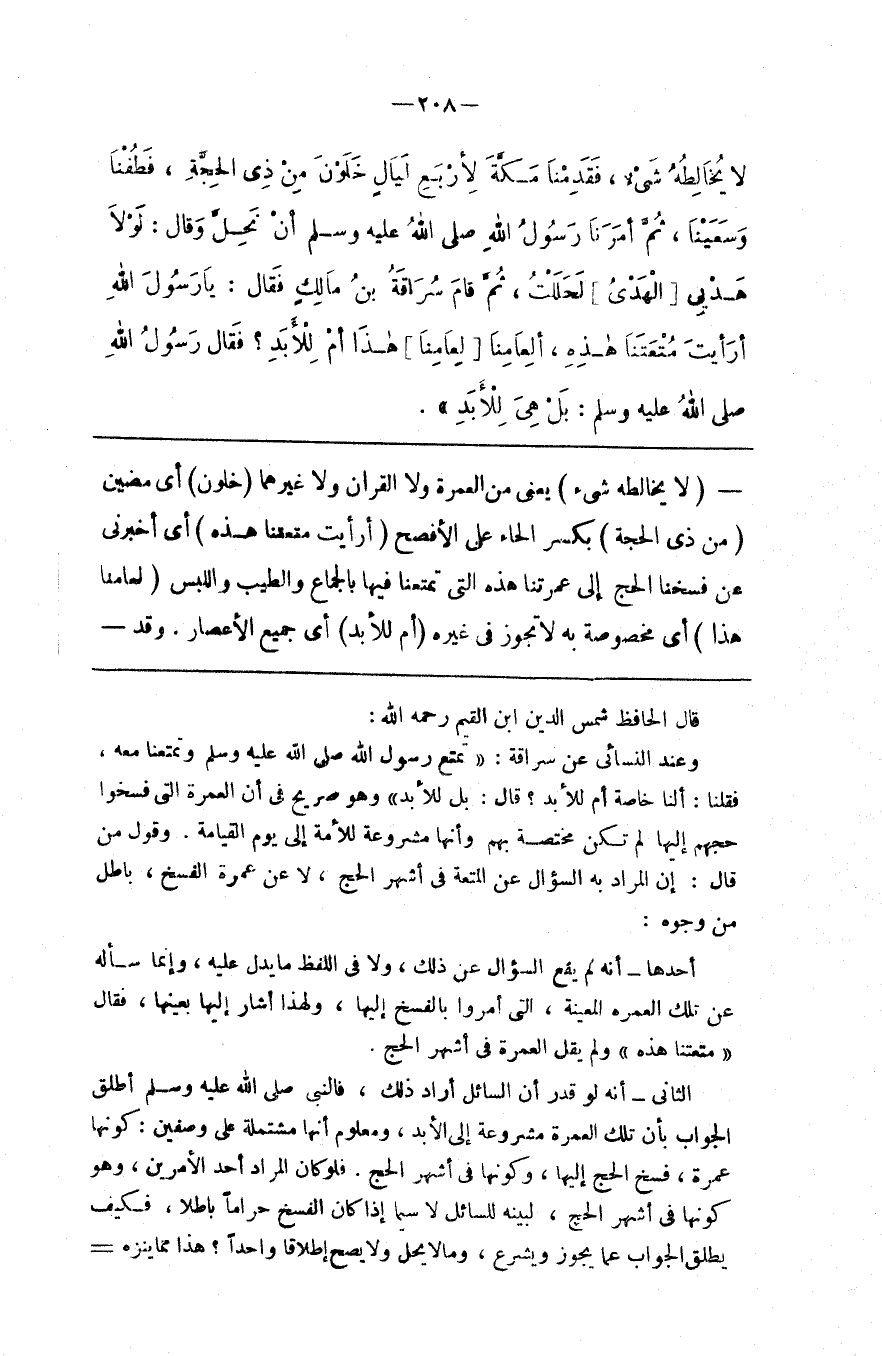 —٢٠٨—
لا يُخَالِطُهُ شَىْءٌ ، فَقَدِمْنَا مَكَّةَ لِأَرْبَعِ لَيَالٍ خَلَوْنَ مِنْ ذِى الحِجَّةِ ، فَطُفْنَا
وَسَعَيْنَا ، ثُمَّ أمَرَنَا رَسُولُ اللهِ صلى اللهُ عليه وسلم أنْ نَحِلَّ وَقال : لَوْلاَ
هَدْيِي [ الْهَدْىُ ] لَحَلَلْتُ ، ثُمَّ قامَ سُرَاقَةُ بنُ مَالِكٍ فَقَال : يَارَسُولَ اللهِ
أرَأيتَ مُتْعَتَنَا هٰذِهِ ، ألِعَامِنَا [ لِعَامِنَا ] هٰذَا أمْ لِلْأَبَدِ ؟ فَقَال رَسُولُ اللهِ
صلى اللهُ عليه وسلم : بَلْ هِىَ لِلْأَبَدِ » .
— ( لا يخالطه شىء ) يعنى من العمرة ولا القران ولا غيرهما ( خلون ) أى مضين
( من ذى الحجة ) بكسر الحاء على الأفصح ( أرأيت متعتنا هذه ) أى أخبرنى
عن فسخنا الحج إلى عمرتنا هذه التى تمتعنا فيها بالجماع والطيب واللبس ( لعامنا
هذا ) أى مخصوصة به لاتجوز فى غيره ( أم للأبد ) أى جميع الأعصار . وقد —
قال الحافظ شمس الدين ابن القيم رحمه الله :
وعند النسائى عن سراقة : « تمتع رسول الله صلى الله عليه وسلم وتمتعنا معه ،
فقلنا : ألنا خاصة أم للأبد ؟ قال : بل للأبد» وهو صريح فى أن العمرة التى فسخوا
حجهم إليها لم تكن مختصة بهم وأنها مشروعة للأمة إلى يوم القيامة . وقول من
قال : إن المراد به السؤال عن المتعة فى أشهر الحج ، لا عن عمرة الفسخ ، باطل
من وجوه :
أحدها ــ أنه لم يقع السؤال عن ذلك ، ولا فى اللفظ مايدل عليه ، وإنما سأله
عن تلك العمره المعينة ، التى أمروا بالفسخ إليها ، ولهذا أشار إليها بعينها ، فقال
« متعتنا هذه » ولم يقل العمرة فى أشهر الحج .
الثانى ــ أنه لو قدر أن السائل أراد ذلك ، فالنبى صلى الله عليه وسلم أطلق
الجواب بأن تلك العمرة مشروعة إلى الأبد ، ومعلوم أنها مشتملة على وصفين : كونها
عمرة ، فسخ الحج إليها ، وكونها فى أشهر الحج . فلوكان المراد أحد الأمرين ، وهو
كونها فى أشهر الحج ، لبينه للسائل لا سيما إذا كان الفسخ حراماً باطلا ، فكيف
يطلق الجواب عما يجوز ويشرع ، ومالايحل ولايصح إطلاقا واحداً ؟ هذا مماينزه =